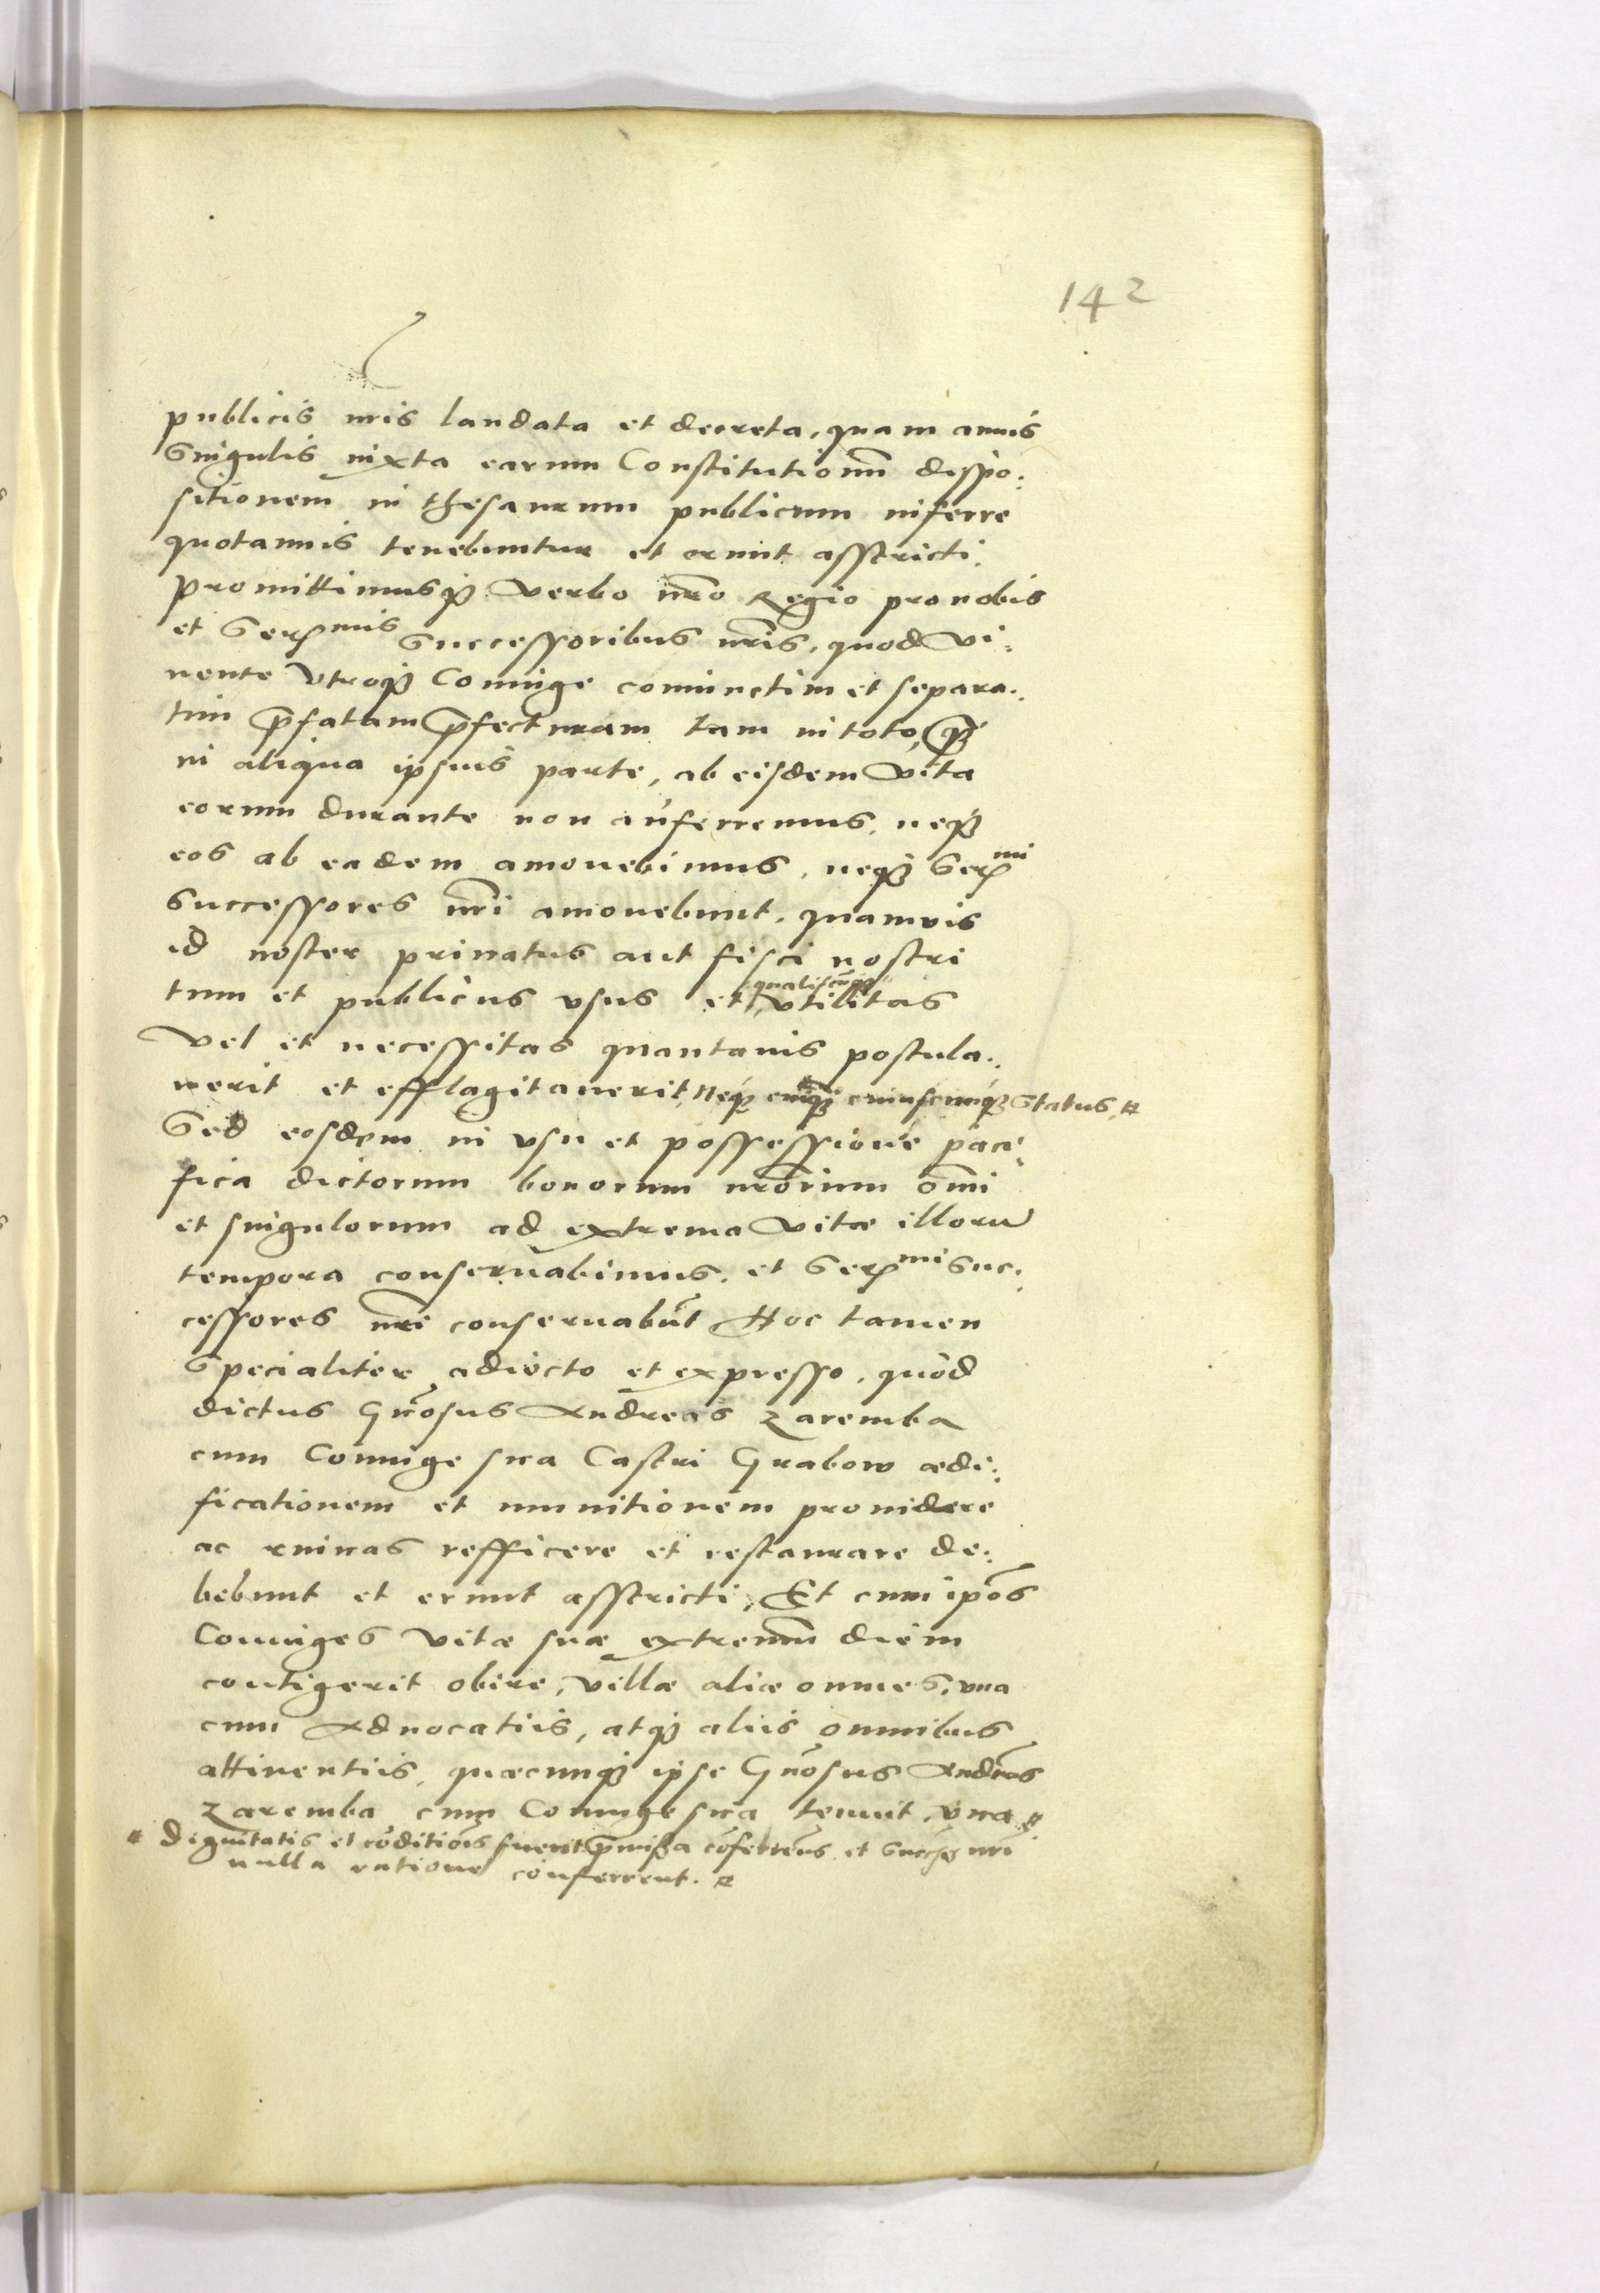 142
publicis nris laudata et decreta, quam annis
Singulis iuxta earum Constitutionũ dispo:
sitionem in thesaurum publicum inferre
quotannis tenebuntur et erunt asstricti.
Promittimusq; verbo nr̃o Regio pro nobis
et Ser^mis Successoribus nr̃is, quod vi:
uente vtroq; Coniuge coniunctim et separa:
tim p̃fatam p̃fecturam tam in toto, q̃
in aliqua ipsius parte, ab eisdem vita
eorum durante non auferremus, neq;
eos ab eadem amouebimus, neq; Ser^mi
Successores nr̃i amouebunt, quamuis
id noster priuatus aut fisci nostri
qualiscũq;
tum et publicus vsus et vtilitas
vel et necessitas quantauis postula:
uerit et efflagitauerit, Neq; cuiq; cuiuscunq; Status, #
Sed eosdem in vsu et possessione paci:
fica dictorum bonorum nrõrum om̃i
et singulorum ad extrema vitæ illorũ
tempora conseruabimus, et Ser^mi Suc:
cessores nr̃i conseruabũt. Hoc tamen
Specialiter adiecto et expresso, quod
dictus Gñosus Andreas Zaremba
cum Coniuge sua Castri Grabow ædi:
ficationem et munitionem prouidere
ac ruinas refficere et restaurare de:
bebunt et erunt asstricti, Et cum ip̃os
Coniuges vitæ suæ extremũ diem
contigerit obire, villæ aliæ omnes, vna
cum Aduocatiis, atq; aliis omnibus
attinentiis, quæcunq; ipse Gñosus Andreas
Zaremba cum Coniuge sua tenuit, vna #
# Dignitatis et cõditiõis fuerit p̃missa cõferremus et nr̃i
nulla ratione conferrent. #